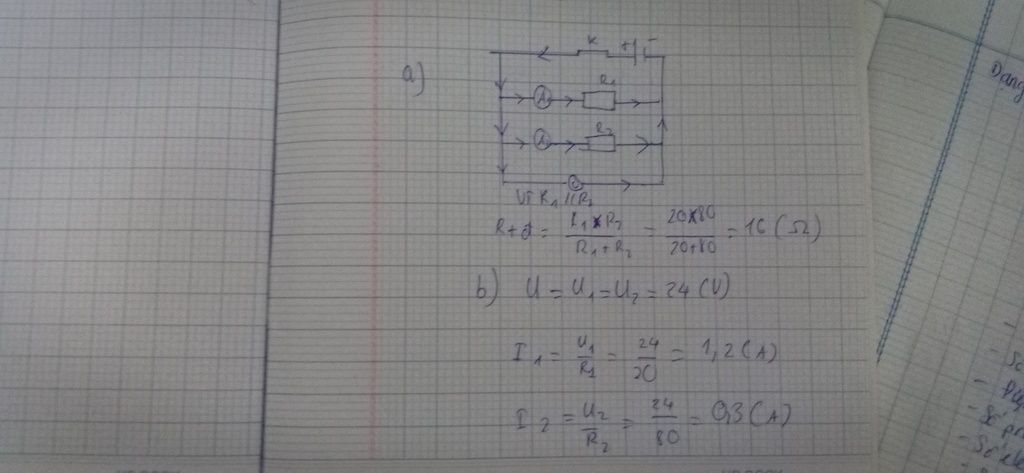 a)
K + -
A R1
A R2
Vì R1 // R2
Rtđ = R1 x R2 / R1 + R2 = 20x80 / 20+80 = 16 (Ω)
b) U = U1 = U2 = 24 (V)
I1 = U1 / R1 = 24 / 20 = 1,2 (A)
I2 = U2 / R2 = 24 / 80 = 0,3 (A)
Dạng